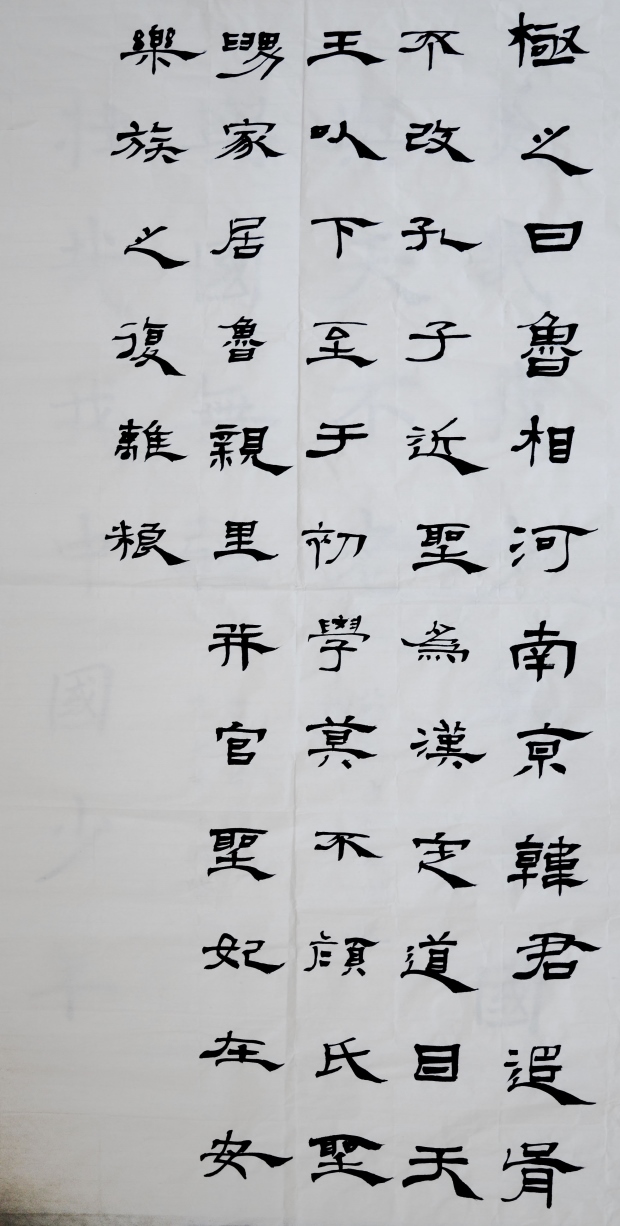 極之日魯相河南京韓君追胥
不改孔子近聖為漢定道自天
王以下至于初學莫不顏氏聖
舅家居魯親里并官聖妃在安
樂族之復離粮